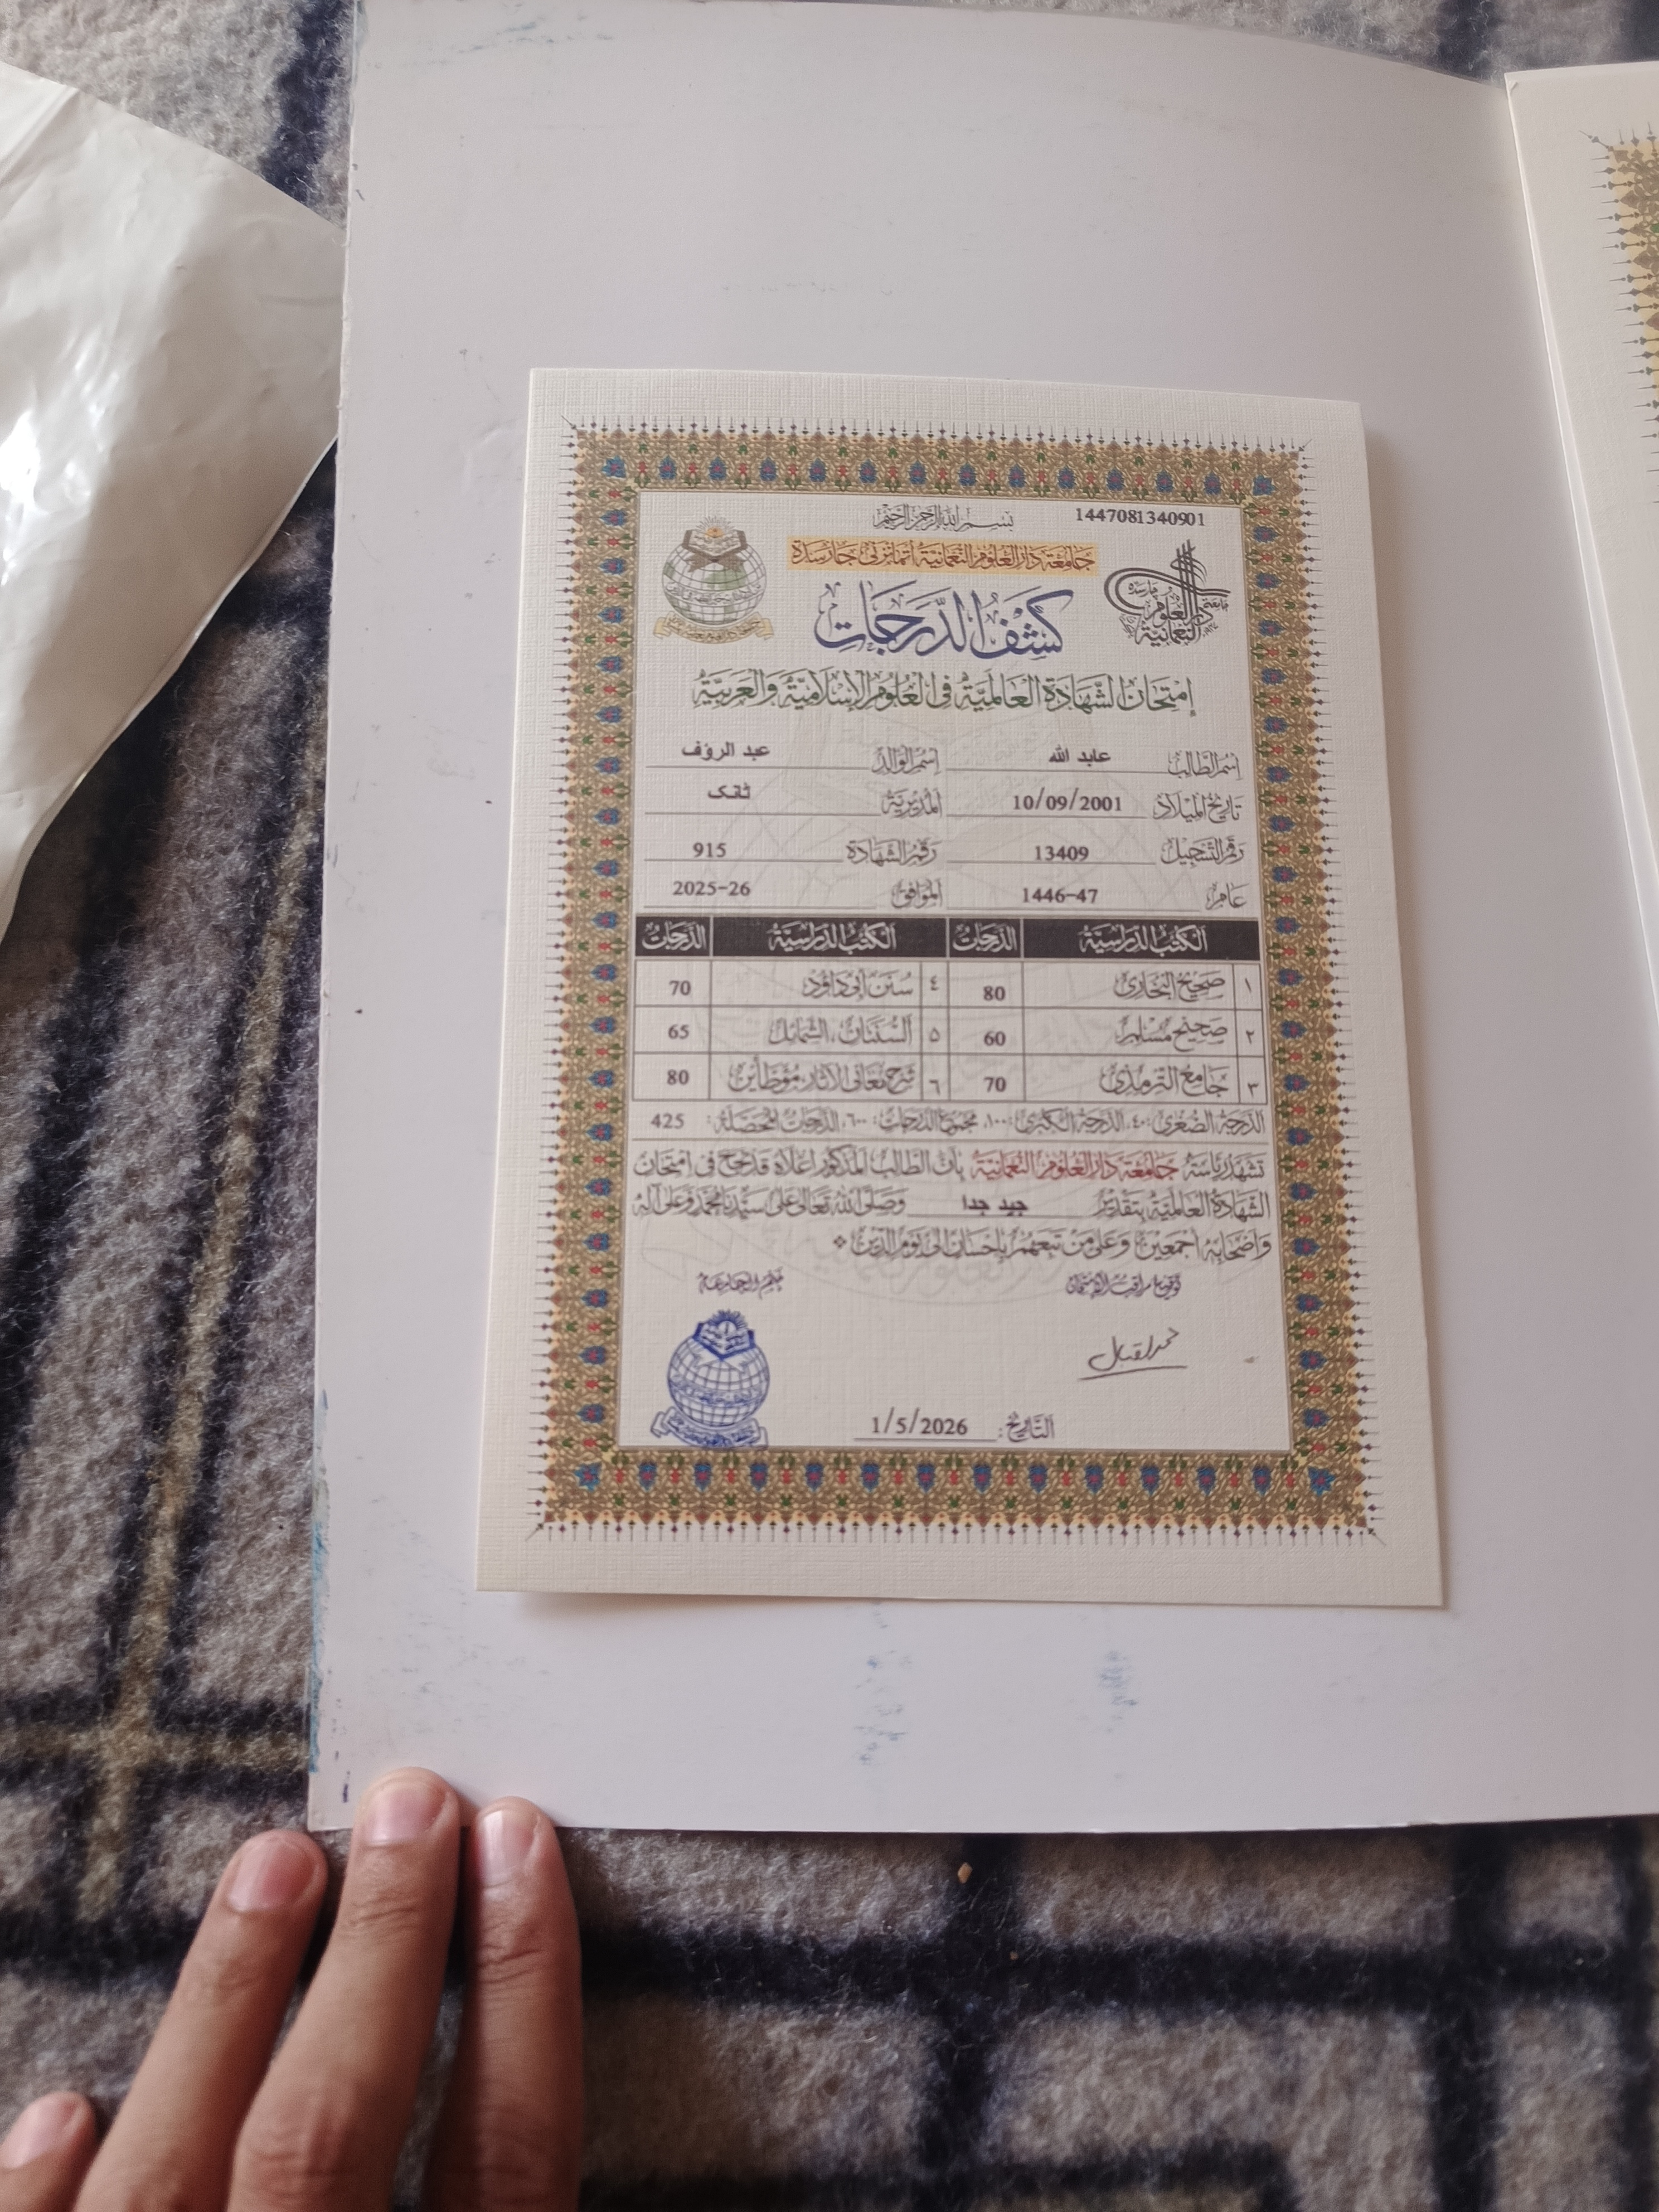 1447081340901
بسم الله الرحمن الرحيم
جامعة دار العلوم النعمانية اتمانزئی چارسدة
كشف الدرجات
إمتحان الشهادة العالمية في العلوم الإسلامية والعربية
اسم الطالب عابد الله اسم الوالد عبد الرؤف
تاريخ الميلاد 10/09/2001 المديرية ٹانک
رقم التسجيل 13409 رقم الشهادة 915
عام 1446-47 الموافق 2025-26
الكتب الدراسية الدرجات الكتب الدراسية الدرجات
١ صحيح البخاري 80 ٤ سنن أبي داؤد 70
٢ صحيح مسلم 60 ٥ السننان، الشمائل 65
٣ جامع الترمذي 70 ٦ شرح معاني الآثار، مؤطأين 80
الدرجة الصغرى: ٤٠، الدرجة الكبرى: ١٠٠، مجموع الدرجات: ٦٠٠، الدرجات المحصلة: 425
تشهد رياسة جامعة دار العلوم النعمانية بأن الطالب المذكور أعلاه قد نجح في امتحان
الشهادة العالمية بتقدير جيد جدا وصلى الله تعالى على سيدنا محمد وعلى آله
وأصحابه أجمعين وعلى من تبعهم بإحسان إلى يوم الدين
توقيع مراقب الإمتحان ختم الجامعة
محمد اقبال
التاريخ: 1/5/2026